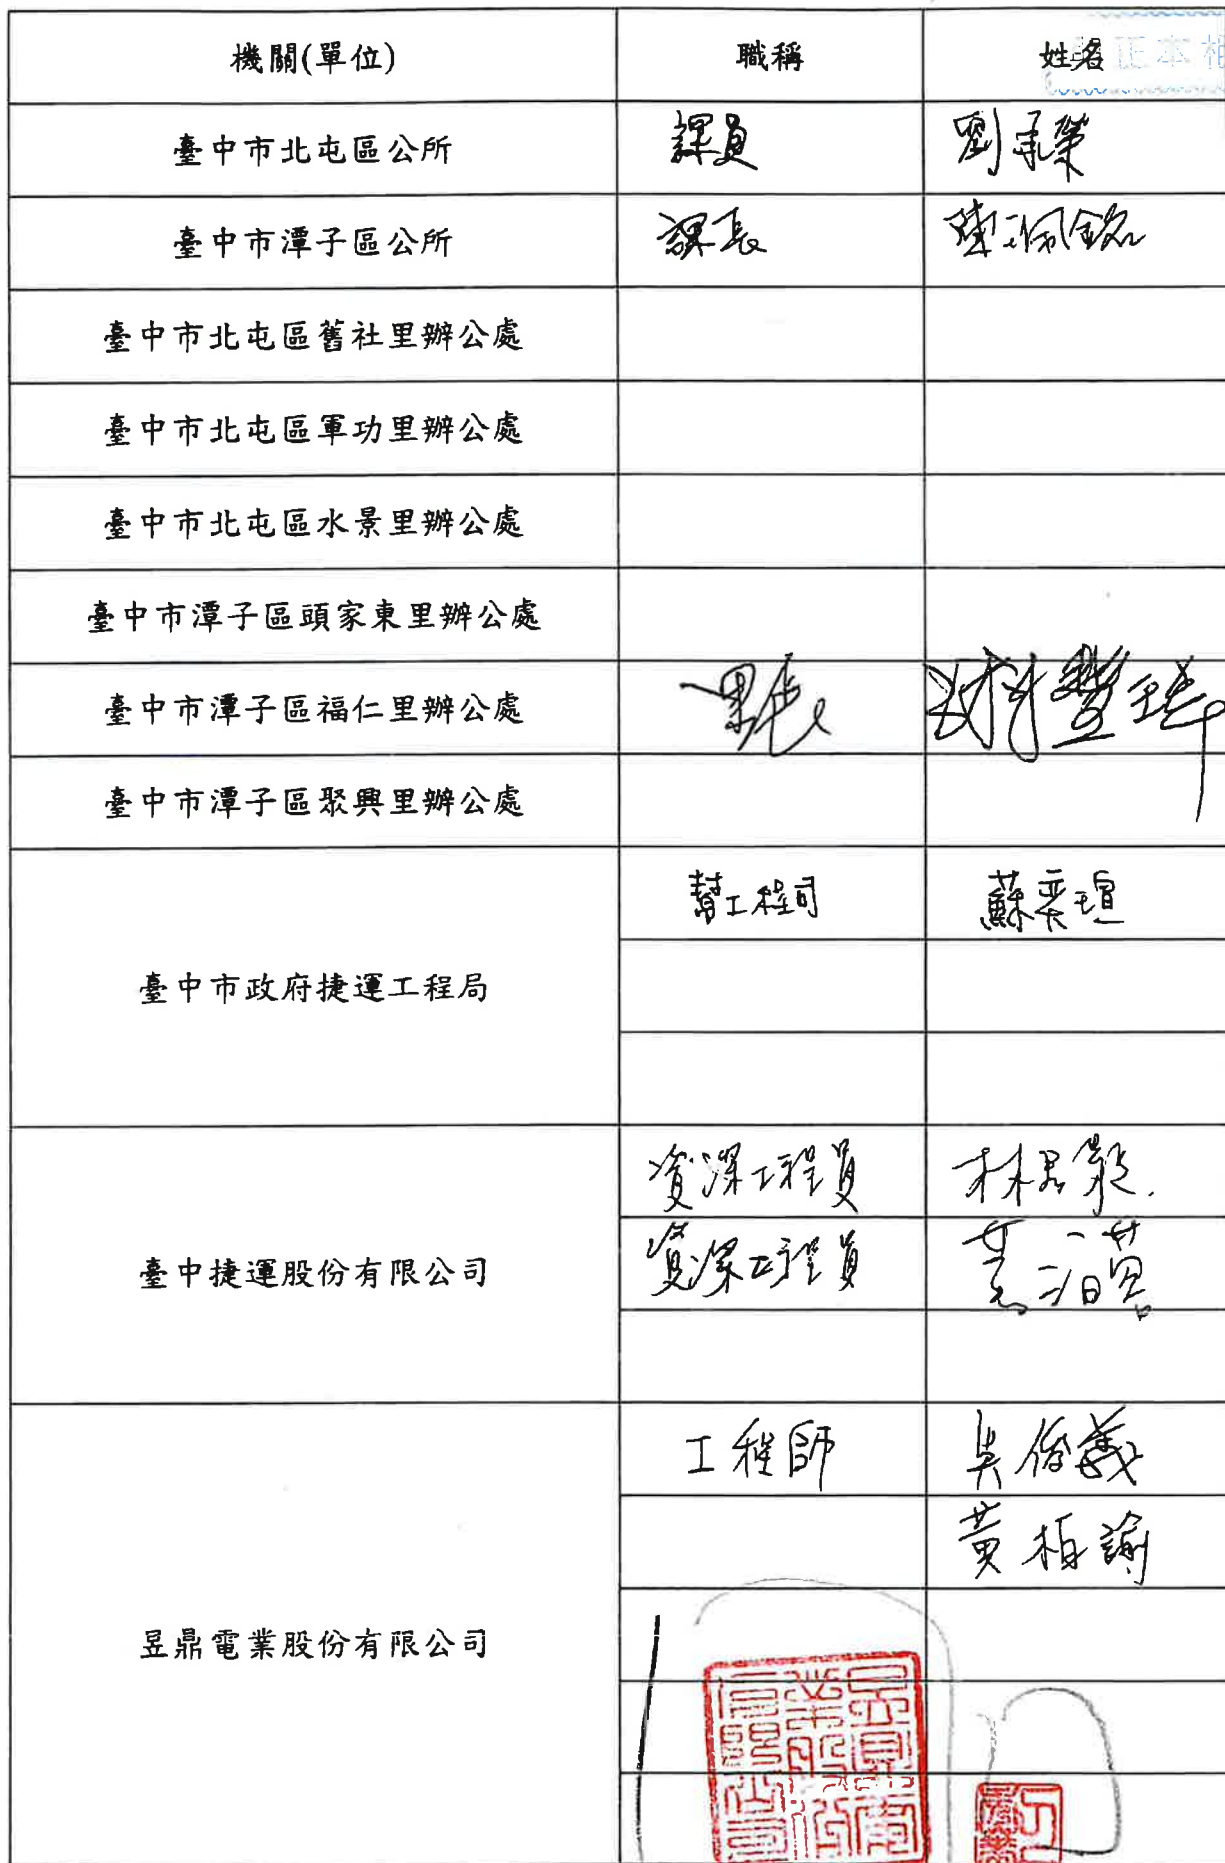 機關(單位) 職稱 姓名
正本相
臺中市北屯區公所 課員 劉承榮
臺中市潭子區公所 課長 陳珮銘
臺中市北屯區舊社里辦公處
臺中市北屯區軍功里辦公處
臺中市北屯區水景里辦公處
臺中市潭子區頭家東里辦公處
臺中市潭子區福仁里辦公處 里長
臺中市潭子區聚興里辦公處
臺中市政府捷運工程局 幫工程司 蘇奕瑄
臺中捷運股份有限公司 資深工程員 林君毅
資深工程員
昱鼎電業股份有限公司 工程師 吳俊義
黃柏諭
昱鼎電業股份有限公司